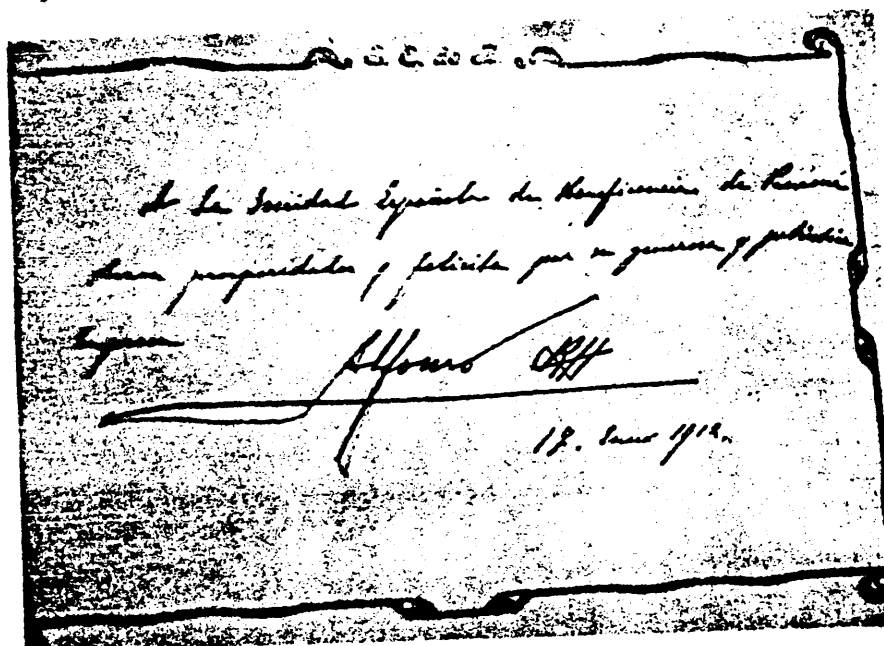 A La Sociedad Española de Beneficencia de Panamá
desea prosperidades y felicita por su generosa y patriótica
Empresa
Alfonso XIII
17. Enero 1912.